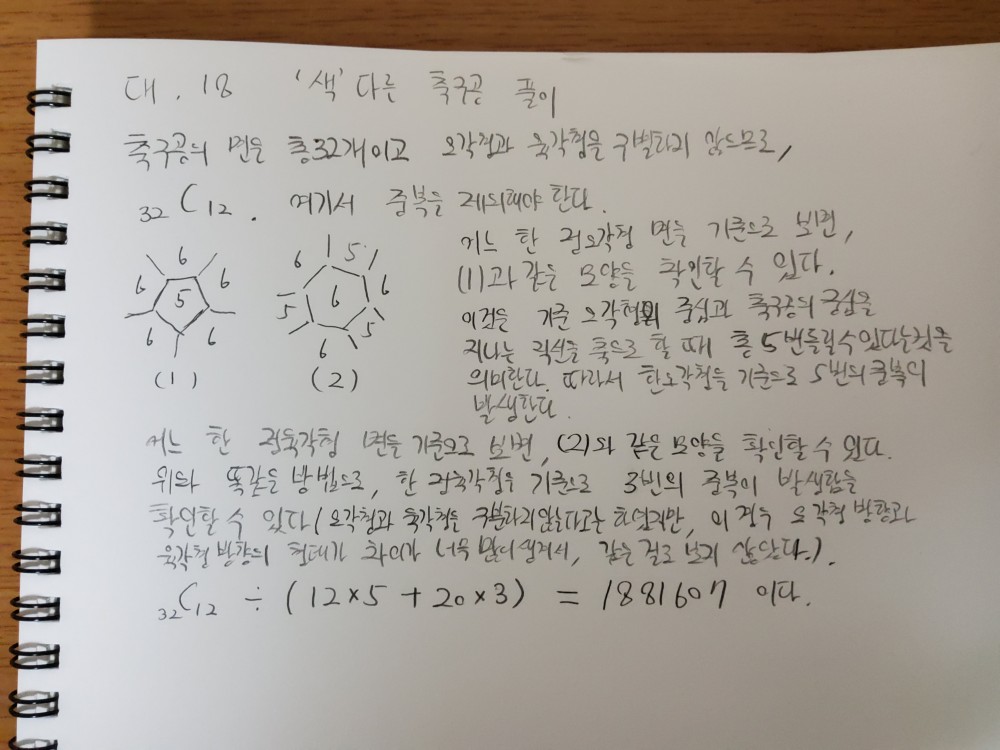 대. 18 '색' 다른 축구공 풀이
축구공의 면은 총32개이고 오각형과 육각형을 구별하지 않으므로,
32C12. 여기서 중복을 제외해야 한다.
6 6 6 6 6 5
(1)
6 5 6 5 6 5 6
(2)
어느 한 정오각형 면을 기준으로 보면,
(1)과 같은 모양을 확인할 수 있다.
이것은 기준 오각형의 중심과 축구공의 중심을
지나는 직선을 축으로 할 때 총 5번돌릴수있다는것을
의미한다. 따라서 한오각형을 기준으로 5번의 중복이
발생한다.
어느 한 정육각형 면을 기준으로 보면, (2)와 같은 모양을 확인할 수 있다.
위와 똑같은 방법으로, 한 정육각형을 기준으로 3번의 중복이 발생함을
확인할 수 있다(오각형과 육각형을 구분하지않는다고는 하였지만, 이 경우 오각형 방향과
육각형 방향의 형태가 차이가 너무 많이 생겨서, 같은 걸로 보지 않았다.).
32C12 ÷ (12×5 + 20×3) = 1881607 이다.